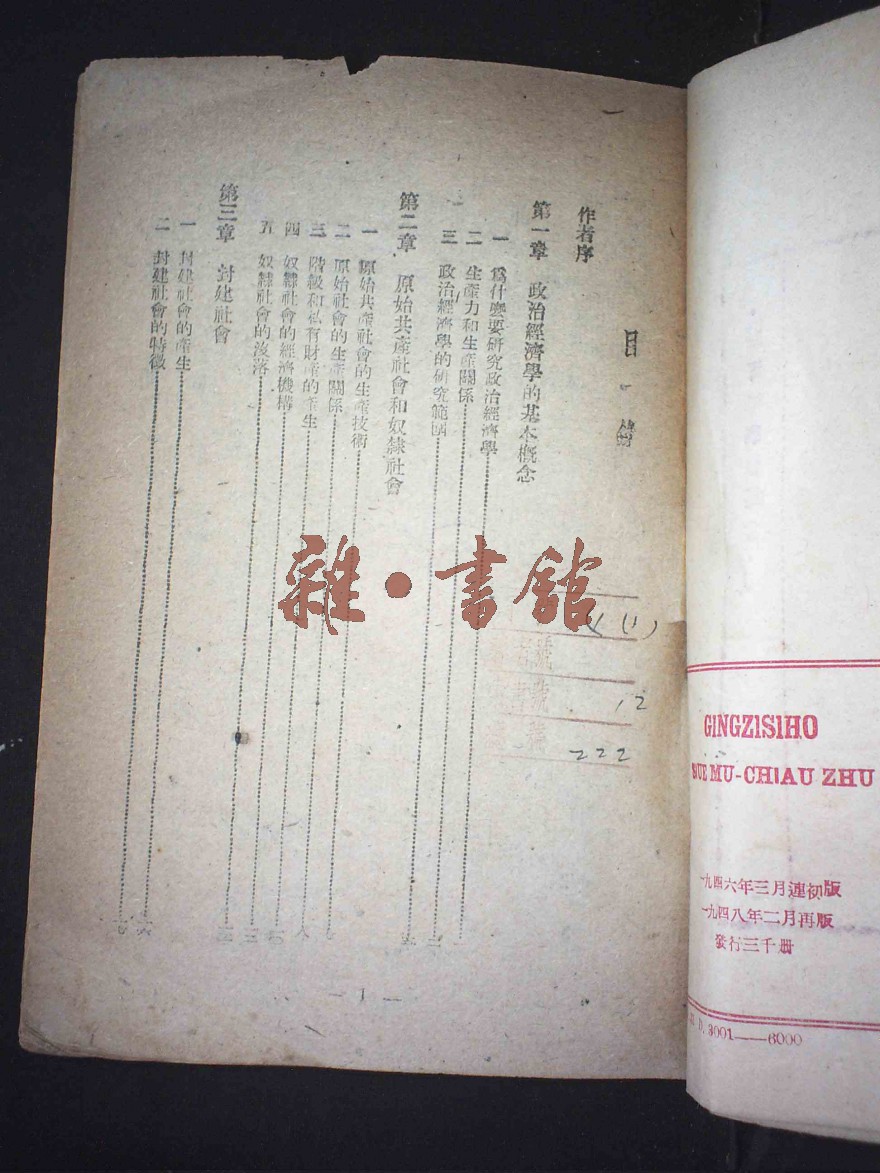 目錄
作者序
第一章 政治經濟學的基本概念
一 爲什麼要研究政治經濟學
二 生產力和生產關係
三 政治經濟學的研究範圍
第二章 原始共產社會和奴隸社會
一 原始共產社會的生產技術
二 原始社會的生產關係
三 階級和私有財產的產生
四 奴隸社會的經濟機構
五 奴隸社會的沒落
第三章 封建社會
一 封建社會的產生
二 封建社會的特徵
— 1 —
雜·書館
(1)
12
222
GINGZISIHO
MU-CHIAU ZHU
一九四六年三月連初版
一九四八年二月再版
發行三千册
D. 3001——6000